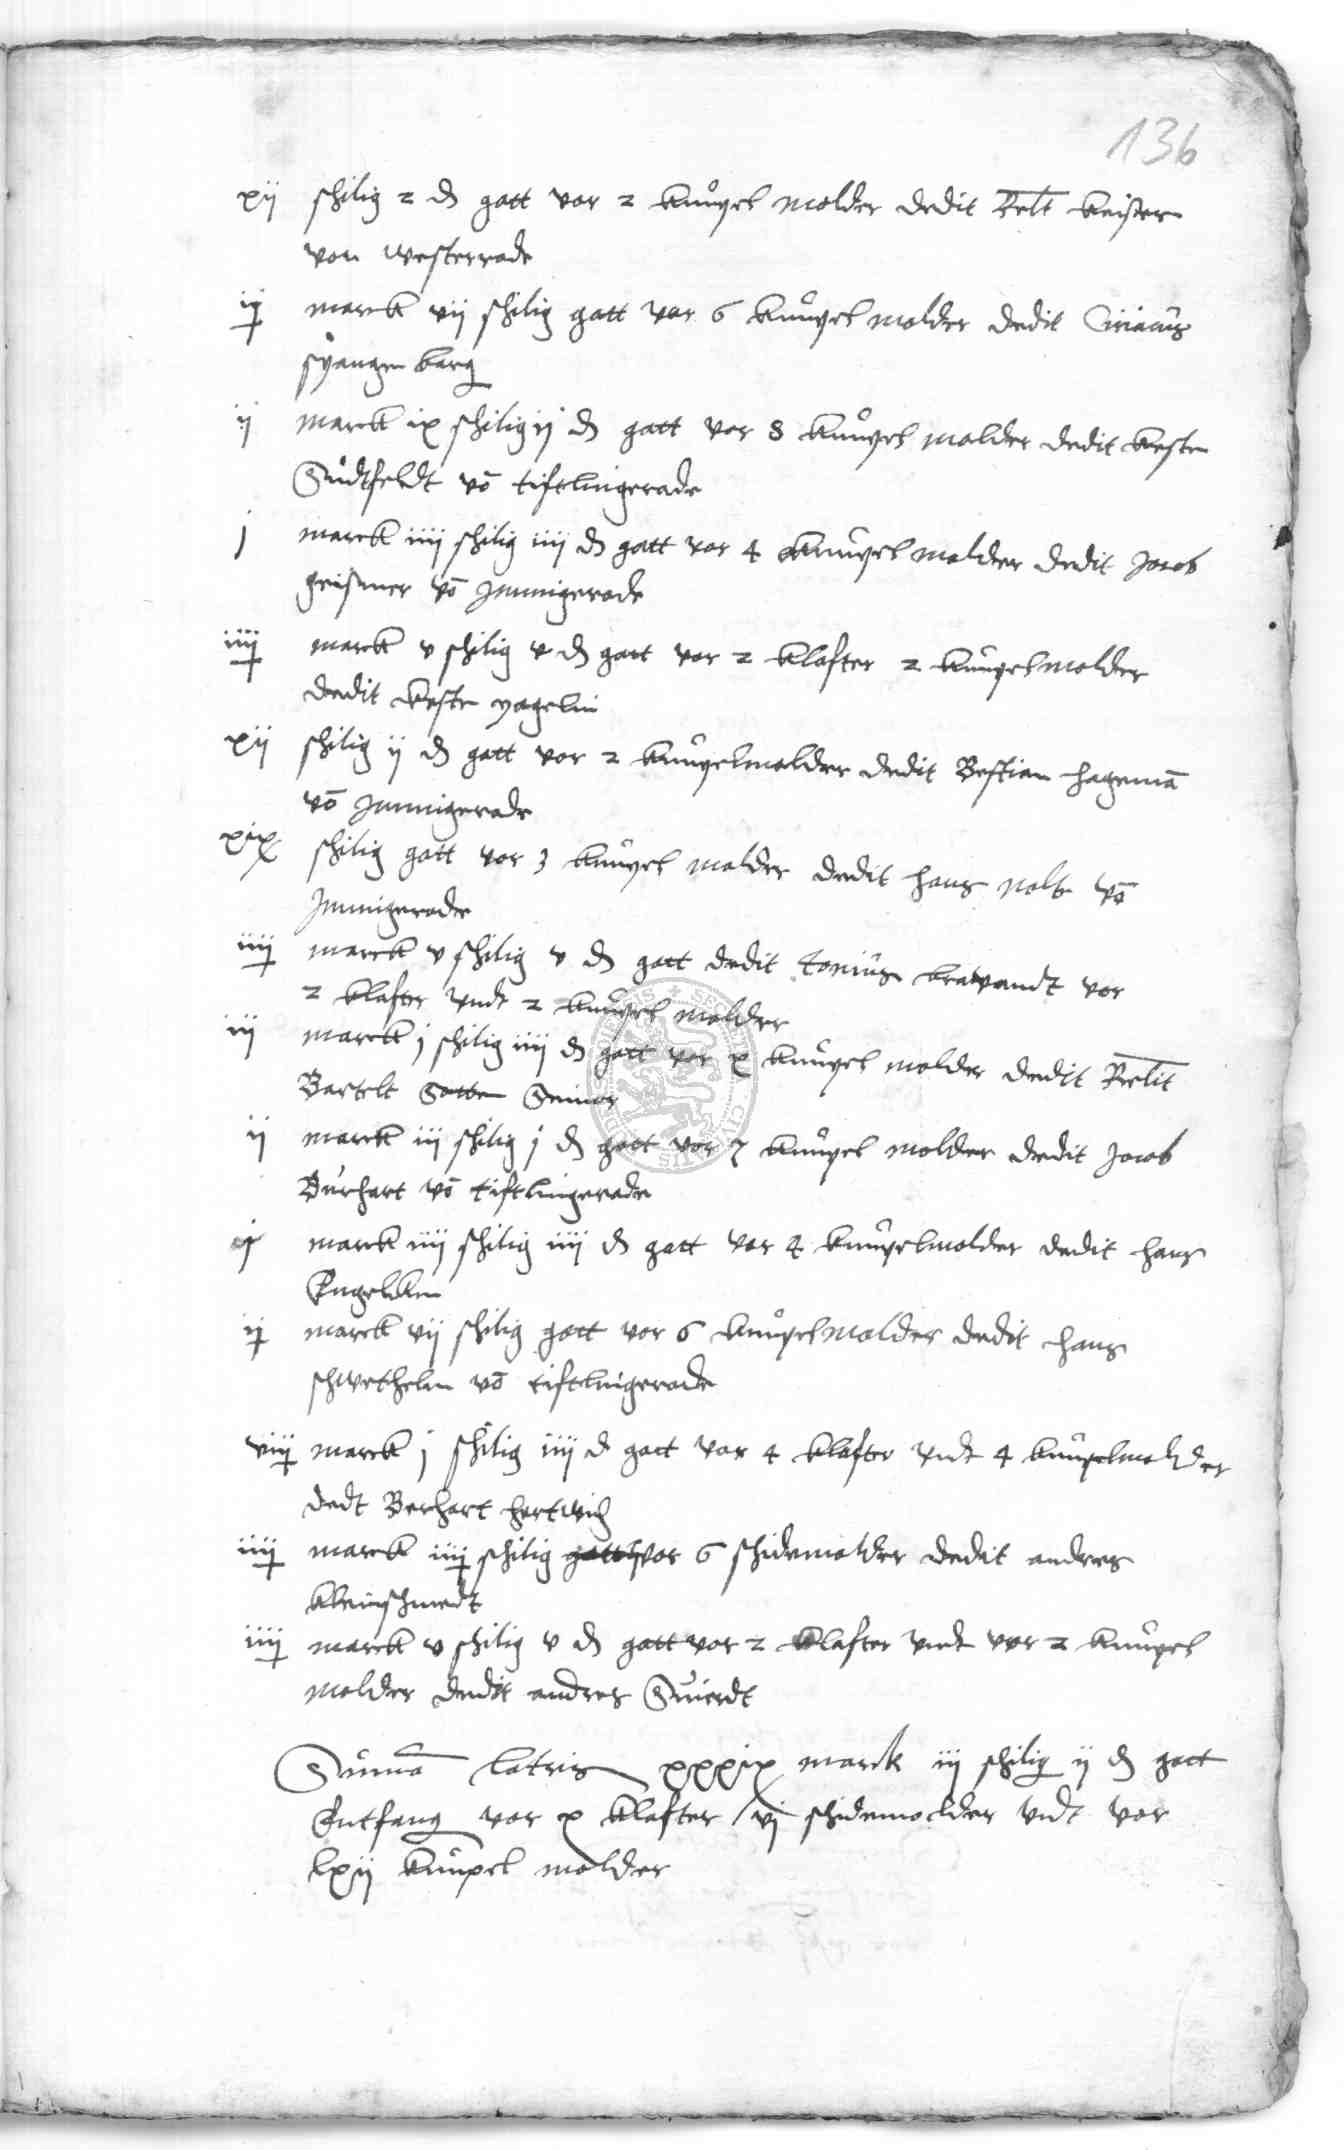 136
xij schilig 2 d gatt vor 2 knuppel molder dedit Relt keiser
von westerrade
ij marck vij schilig gatt vor 6 knuppel molder dedit Ciriacus
spangenbarg
ij marck ix schilig ij d gatt vor 8 knuppel molder dedit keste
Sudtfeldt vō tiftlingerade
j marck iiij schilig iiij d gatt vor 4 knuppel molder dedit Jacob
geismer vō Immigerade
iiij marck v schilig v d gatt vor 2 klafter 2 knuppelmolder
dedit keste
xij schilig ij d gatt vor 2 knuppelmolder dedit Bestian hagemā
vō Immigerade
xix schilig gatt vor 3 knuppel molder dedit hans nolte vō
Immigerade
iiij marck v schilig v d gatt dedit tonius brawandt vor
2 klafter vndt 2 knuppel molder
iij marck j schilig iiij d gatt vor x knuppel molder dedit Relit
Bartelt
ij marck iij schilig j d gatt vor 7 knuppel molder dedit Jacob
Burhart vō tiftlingerade
j marck iiij schilig iiij d gatt vor 4 knuppelmolder dedit hans
Engelken
ij marck vij schilig gatt vor 6 knuppelmolder dedit hans
schwethelm vō tiftlingerade
viij marck j schilig iiij d gatt vor 4 klafter vndt 4 knuppelmolder
dedt Berhart hertwich
iiij marck iiij schilig gatt vor 6 schidemolder dedit andres
kleinschmedt
iiij marck v schilig v d gatt vor 2 klafter vndt vor 2 knuppel
molder dedit andres
Summa latris xxxix marck iij schilig ij d gatt
Entfang vor x klafter vj schidemolder vndt vor
lxij knuppel molder